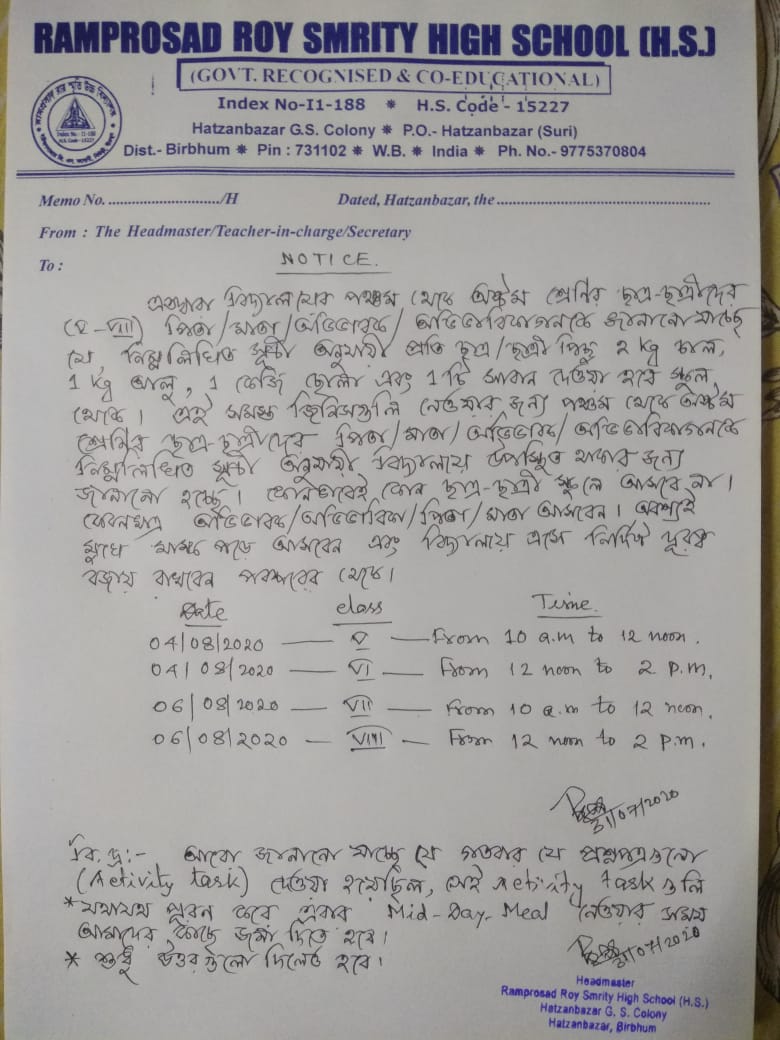 RAMPROSAD ROY SMRITY HIGH SCHOOL (H.S.)
(GOVT. RECOGNISED & CO-EDUCATIONAL)
Index No-I1-188 * H.S. Code - 15227
Hatzanbazar G.S. Colony * P.O.- Hatzanbazar (Suri)
Dist.- Birbhum * Pin : 731102 * W.B. * India * Ph. No.- 9775370804
Index No.- I1-188
H.S. Code- 15227
Memo No. ............................/H Dated, Hatzanbazar, the ......................................................
From : The Headmaster/Teacher-in-charge/Secretary
To :
NOTICE.
এতদ্বারা বিদ্যালয়ের পঞ্চম থেকে অষ্টম শ্রেণির ছাত্র-ছাত্রীদের
(V-VIII) পিতা/মাতা/অভিভাবক/অভিভাবিকাগনকে জানানো যাচ্ছে
যে, নিম্নলিখিত সূচী অনুযায়ী প্রতি ছাত্র/ছাত্রী পিছু 2 kg চাল,
1 kg আলু, 1 কেজি ছোলা এবং 1 টি সাবান দেওয়া হবে স্কুল
থেকে। এই সমস্ত জিনিসগুলি নেওয়ার জন্য পঞ্চম থেকে অষ্টম
শ্রেণির ছাত্র-ছাত্রীদের পিতা/মাতা/অভিভাবক/অভিভাবিকাগনকে
নিম্নলিখিত সূচী অনুযায়ী বিদ্যালয়ে উপস্থিত থাকার জন্য
জানানো হচ্ছে। কোনভাবেই কোন ছাত্র-ছাত্রী স্কুলে আসবে না।
কেবলমাত্র অভিভাবক/অভিভাবিকা/পিতা/মাতা আসবেন। অবশ্যই
মুখে মাস্ক পড়ে আসবেন এবং বিদ্যালয়ে এসে নির্দিষ্ট দূরত্ব
বজায় রাখবেন পরস্পরের থেকে।
Date class Time
04/08/2020 — V — From 10 a.m to 12 noon.
04/08/2020 — VI — From 12 noon to 2 P.m.
06/08/2020 — VII — From 10 a.m to 12 noon.
06/08/2020 — VIII — From 12 noon to 2 P.m.
31/07/2020
বি.দ্র:- আরো জানানো যাচ্ছে যে গতবার যে প্রশ্নপত্রগুলো
(Activity task) দেওয়া হয়েছিল, সেই Activity task গুলি
* যথাযথ পূরন করে এবার Mid-Day-Meal নেওয়ার সময়
আমাদের কাছে জমা দিতে হবে।
* শুধু উত্তরগুলো দিলেও হবে।
31/07/2020
Headmaster
Ramprosad Roy Smrity High School (H.S.)
Hatzanbazar G. S. Colony
Hatzanbazar, Birbhum